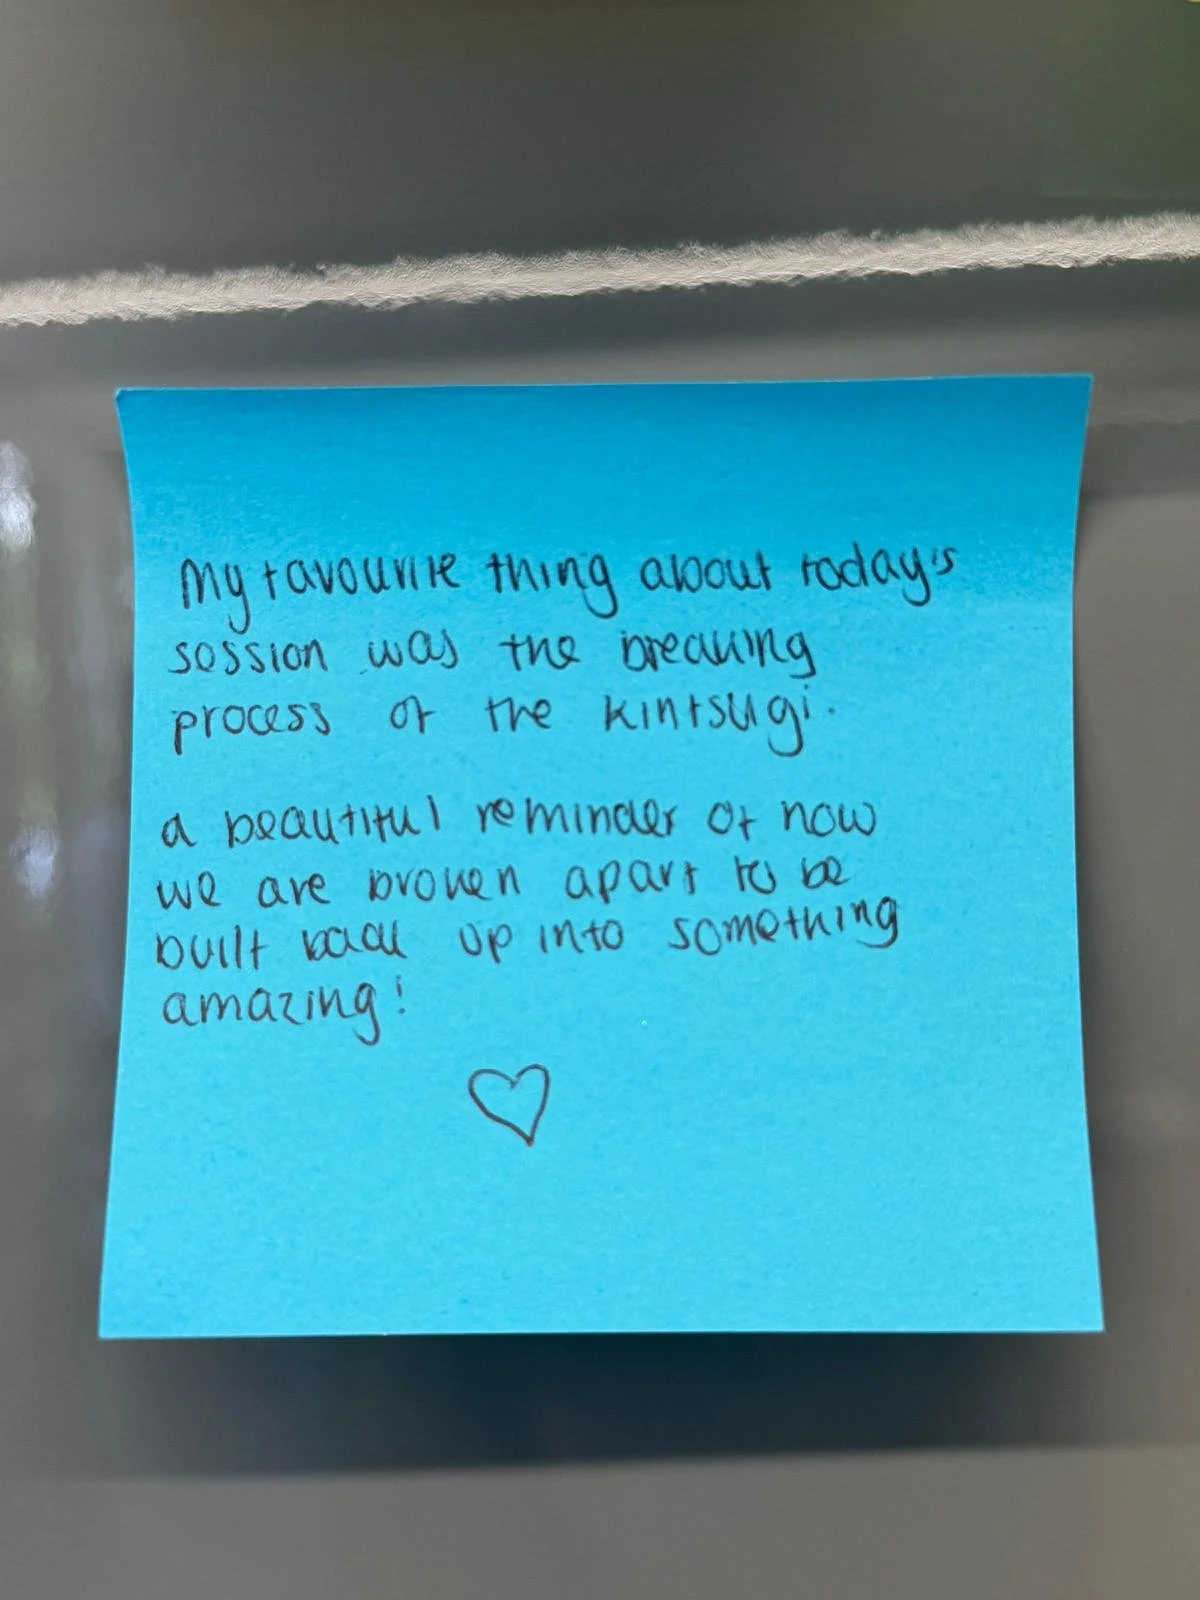 My favourite thing about today's
session was the breaking
process of the kintsugi.
a beautiful reminder of how
we are broken apart to be
built back up into something
amazing!